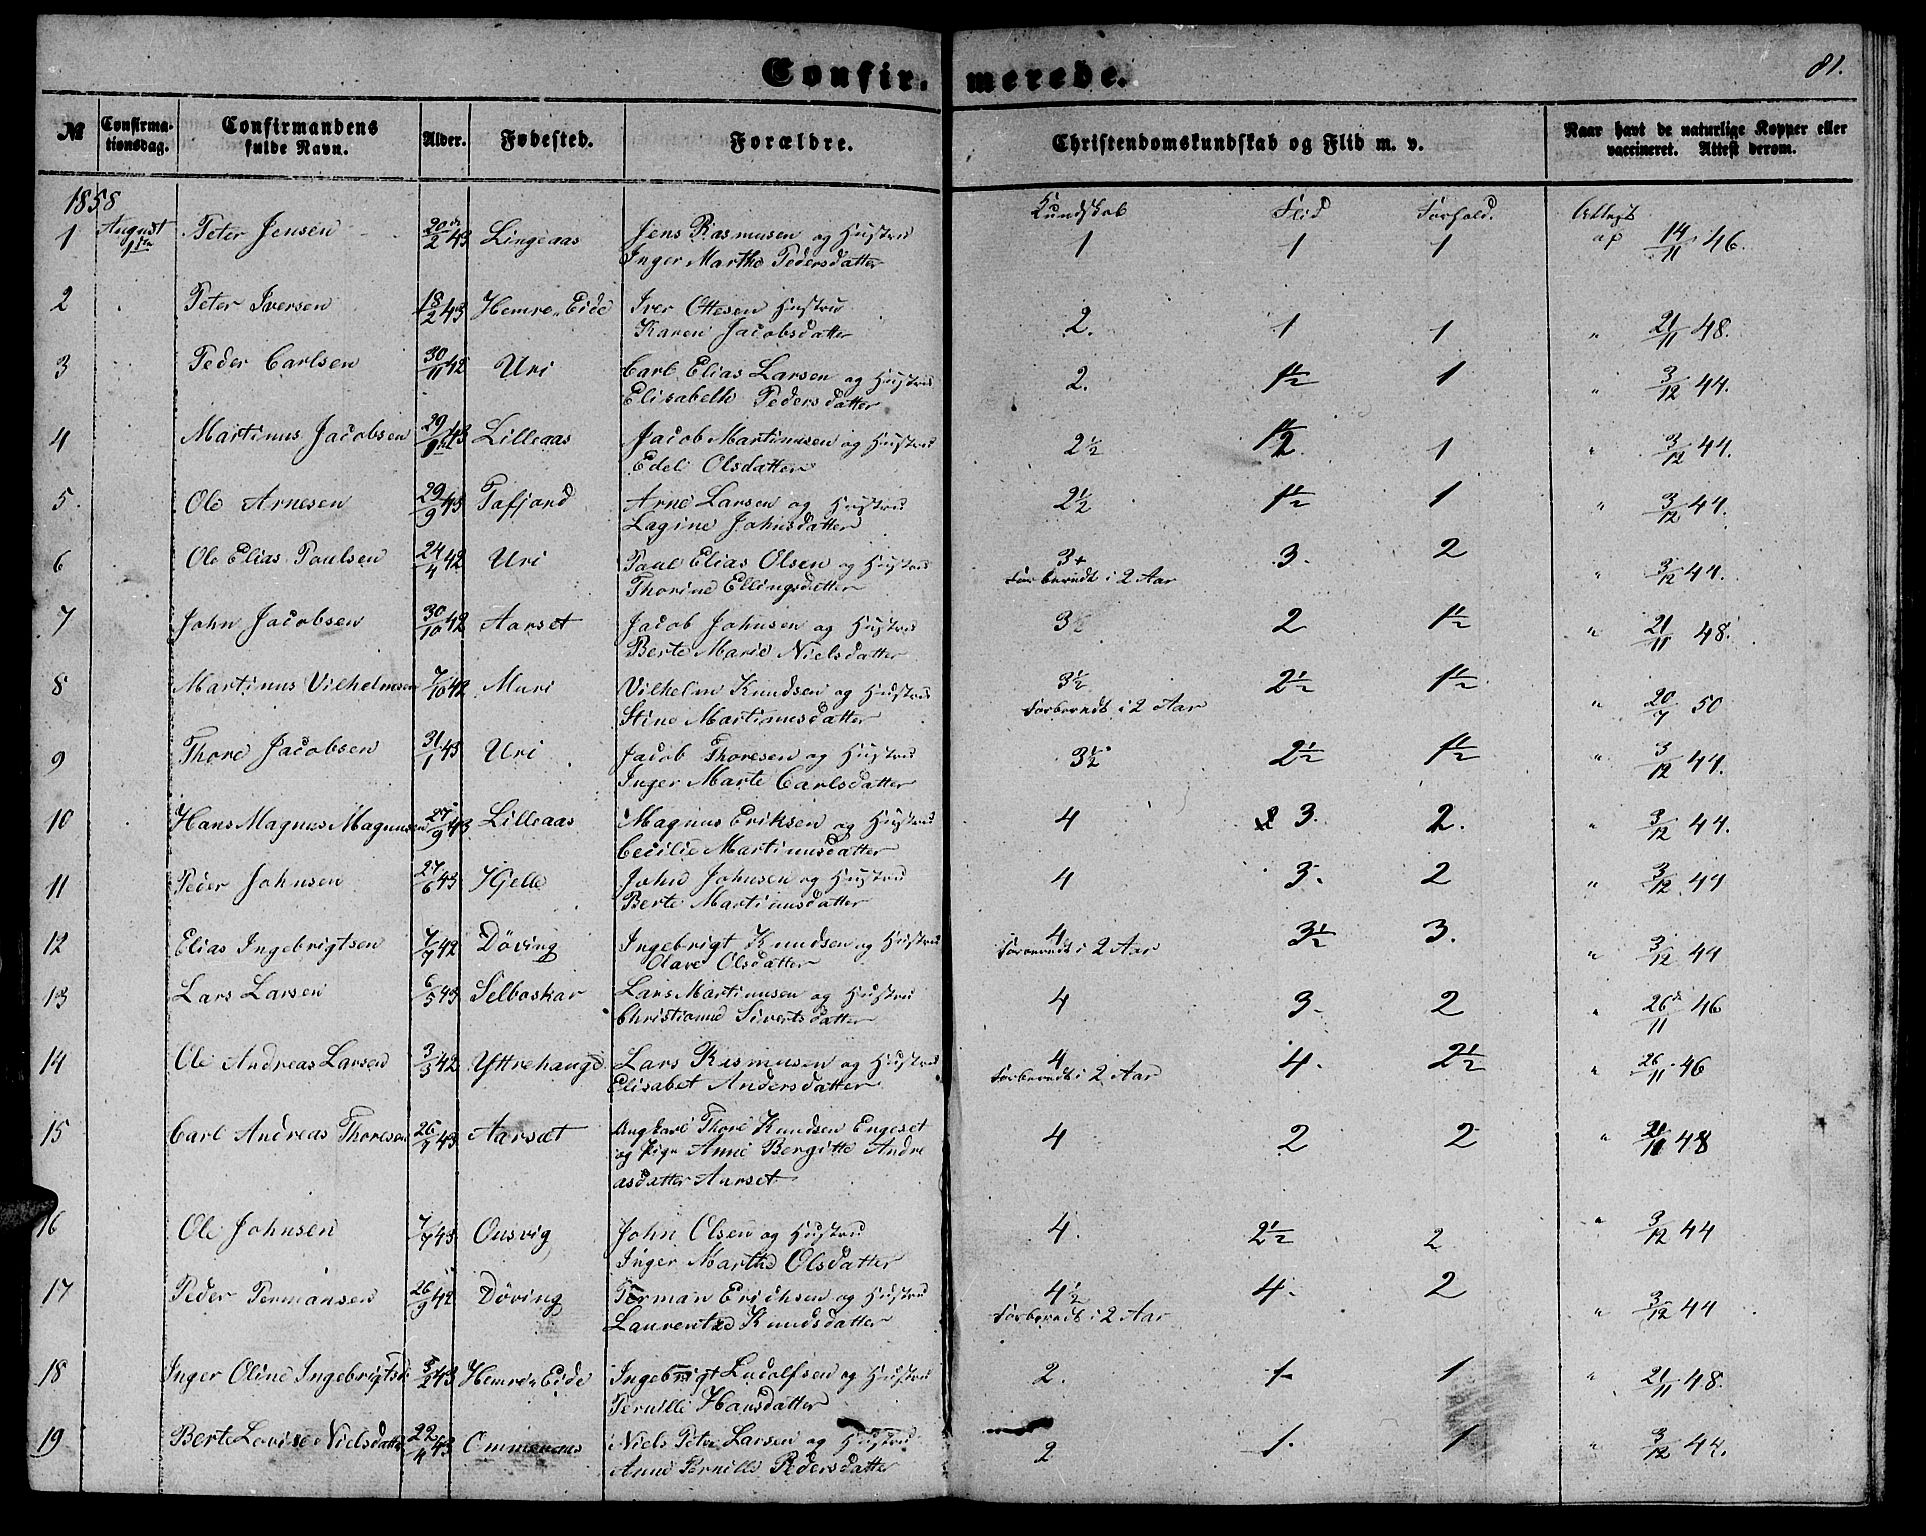 Confir.merede. 81.
№ Confirmationsdag. Confirmandens fulde Navn. Alder. Fødested. Forældre. Christendomskundskab og Flid m. v. Naar havt de naturlige Kopper eller vaccineret. Attest derom.
1858
Kundskab Flid Forhold. Attest
1 August 1ste Peter Jensen 20de/2 43 Lingeaas Jens Rasmusen og Hustru 1 1 1 af 14/11 46.
Inger Marthe Pedersdatter
2 Peter Iversen 18/2 43 Hemre Eide Iver Ottesen Hustru
Karen Jacobsdatter 2. 1 1 " 21/11 48.
3 Peder Carlsen 30/11 42 Uri Carl Elias Larsen og Hustru 2. 1½ 1 " 3/12 44.
Elisabeth Pedersdatter
4 Martinus Jacobsen 29/9 43 Lilleaas Jacob Martinusen og Hustru 2½ 1½ 1 " 3/12 44.
Edel Olsdatter
5. Ole Arnesen 29/9 43 Tafjord Arne Larsen og Hustru 2½ 1½ 1 " 3/12 44.
Lagine Johnsdatter
6 Ole Elias Paulsen 24/4 42 Uri Paul Elias Olsen og Hustru 3+ 3. 2 " 3/12 44.
Thorine Ellingsdatter Forberedt i 2 Aar
7 John Jacobsen 30/10 42 Aarset Jacob Johnsen og Hustru 3½ 2 1½ " 21/11 48.
Berte Marie Nielsdatter
8 Martinus Vilhelmsen 7/10 42 Muri Vilhelm Knudsen og Hustru 3½ 2½ 1½ " 20/7 50
Stine Martinusdatter Forberedt i 2 Aar
9 Thore Jacobsen 31/1 43 Uri Jacob Thoresen og Hustru 3½ 2½ 1½ " 3/12 44.
Inger Marte Carlsdatter
10 Hans Magnus Magnusen 27/9 43 Lilleaas Magnus Eriksen og Hustru 4 3. 2. " 3/12 44.
Cecilie Martinusdatter
11 Peder Johnsen 27/6 43 Hjelle John Johnsen og Hustru 4 3. 2 " 3/12 44
Berte Martinusdatter
12 Elias Ingebrigtsen 7/7 42 Döving Ingebrigt Knudsen og Hustru 4 3½ 3. " 3/12 44
Olave Olsdatter Forberedt i 2 Aar
13 Lars Larsen 6/5 43 Selboskar Lars Martinusen og Hustru 4 3. 2 " 26de/11 46
Christianne Sivertsdatter
14 Ole Andreas Larsen 3/3 42 Yttrehaugd Lars Rasmusen og Hustru 4 4. 2½ " 26/11 46
Elisabet Andersdatter Forberedt i 2 Aar
15 Carl Andreas Thoresen 26/7 43 Aarsæt Ungkarl Thore Knudsen Engeset 4 2 2 " 21/11 48
og Pige Anne Bergitte Andre
asdatter Aarset
16 Ole Johnsen 7/7 43 Onsvig John Olsen og Hustru 4. 2½ 2 " 3/12 44
Inger Marthe Olsdatter
17 Peder Permansen 26/9 42 Döving Perman Erichsen og Hustru 4½ 4. 2 " 3/12 44
Laurentze Knudsdatter Forberedt i 2 Aar
18 Inger Oline Ingebrigtsd. 3/2 43 Hemre Eide Ingebrigt Ludolfsen og Hustru 2. 1. 1 " 21/11 48.
Pernille Hansdatter
19 Berte Lovise Nielsdatter 22/4 43 Ommenaas Niels Peter Larsen og Hustru 2 1. 1 " 3/12 44.
Anne Pernille Pedersdatter